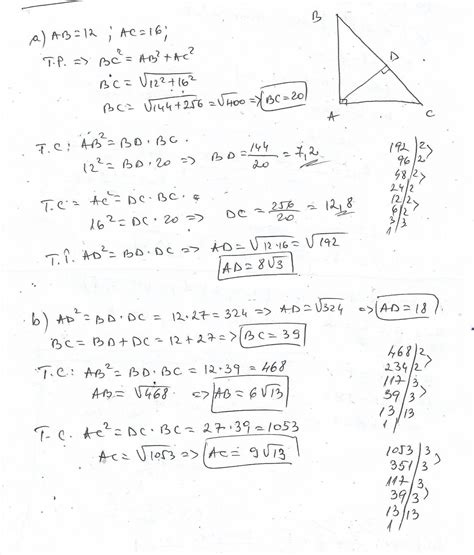 a) AB=12 ; AC=16;
T.P. => BC² = AB² + AC²
BC = √12²+16²
BC = √144+256 = √400 => BC=20
T.C: AB² = BD · BC.
12² = BD · 20 => BD = 144/20 = 7,2
T.C = AC² = DC · BC.
16² = DC · 20 => DC = 256/20 = 12,8
T.Î. AD² = BD · DC => AD = √12·16 = √192
AD = 8√3
B
D
A
C
192 | 2
96 | 2
48 | 2
24 | 2
12 | 2
6 | 2
3 | 3
1
b) AD² = BD · DC = 12·27 = 324 => AD = √324 => AD = 18
BC = BD + DC = 12 + 27 => BC = 39
T.C: AB² = BD · BC = 12·39 = 468
AB = √468 => AB = 6√13
T.C. AC² = DC · BC = 27·39 = 1053
AC = √1053 => AC = 9√13
468 | 2
234 | 2
117 | 3
39 | 3
13 | 13
1
1053 | 3
351 | 3
117 | 3
39 | 3
13 | 13
1